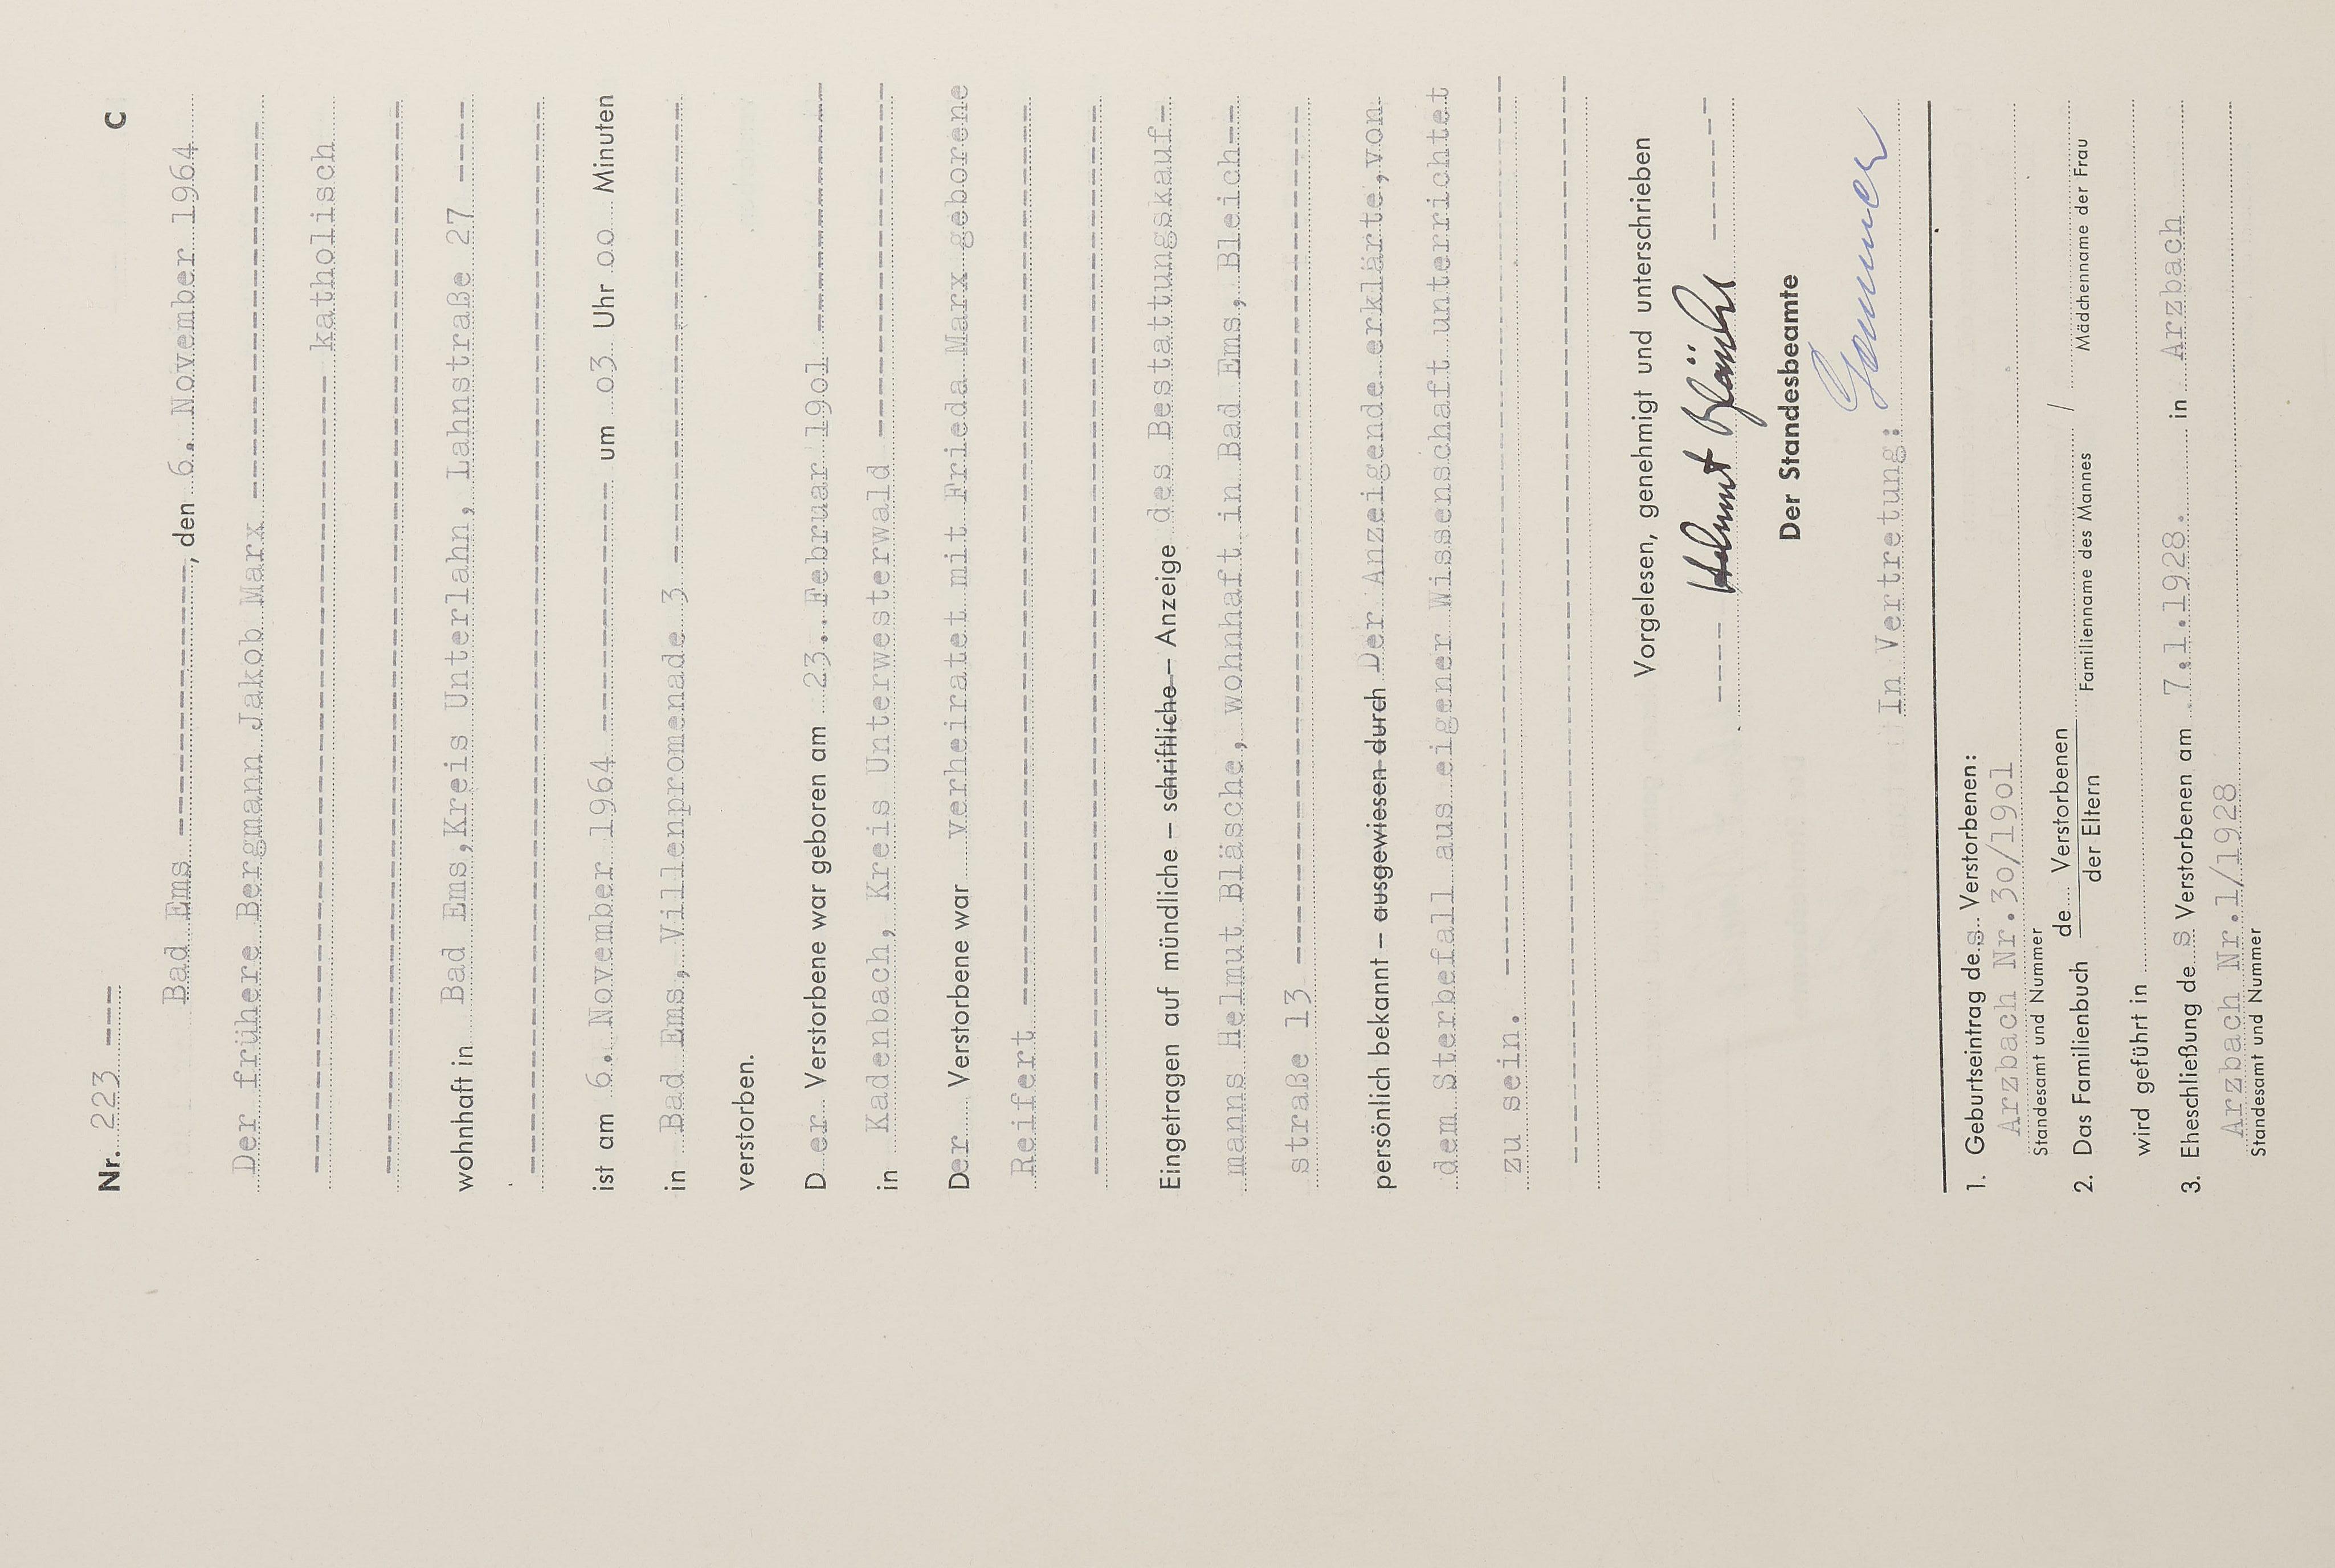 Nr. 223 ---
C
Bad Ems ----------------, den 6. November 1964
Der frühere Bergmann Jakob Marx ----------------
---------------- katholisch
----------------
wohnhaft in Bad Ems, Kreis Unterlahn, Lahnstraße 27 -----
----------------
ist am 6. November 1964 ---------------- um 03 Uhr oo Minuten
in Bad Ems, Villenpromenade 3 ----------------
verstorben.
D er Verstorbene war geboren am 23. Februar 19o1 ----------------
in Kadenbach, Kreis Unterwesterwald ----------------
Der Verstorbene war verheiratet mit Frieda Marx geborene
Reifert ----------------
----------------
Eingetragen auf mündliche – schriftliche – Anzeige des Bestattungskauf-
manns Helmut Bläsche, wohnhaft in Bad Ems, Bleich---
straße 13 ----------------
persönlich bekannt – ausgewiesen durch Der Anzeigende erklärte, von
dem Sterbefall aus eigener Wissenschaft unterrichtet
zu sein. ----------------
----------------
Vorgelesen, genehmigt und unterschrieben
---- Helmut Bläsche ------
Der Standesbeamte
In Vertretung:
1. Geburtseintrag de s Verstorbenen:
Arzbach Nr.3o/19o1
Standesamt und Nummer
2. Das Familienbuch de... Verstorbenen / der Eltern /
Familienname des Mannes Mädchenname der Frau
wird geführt in
3. Eheschließung de s Verstorbenen am 7.1.1928. in Arzbach
Arzbach Nr.1/1928
Standesamt und Nummer